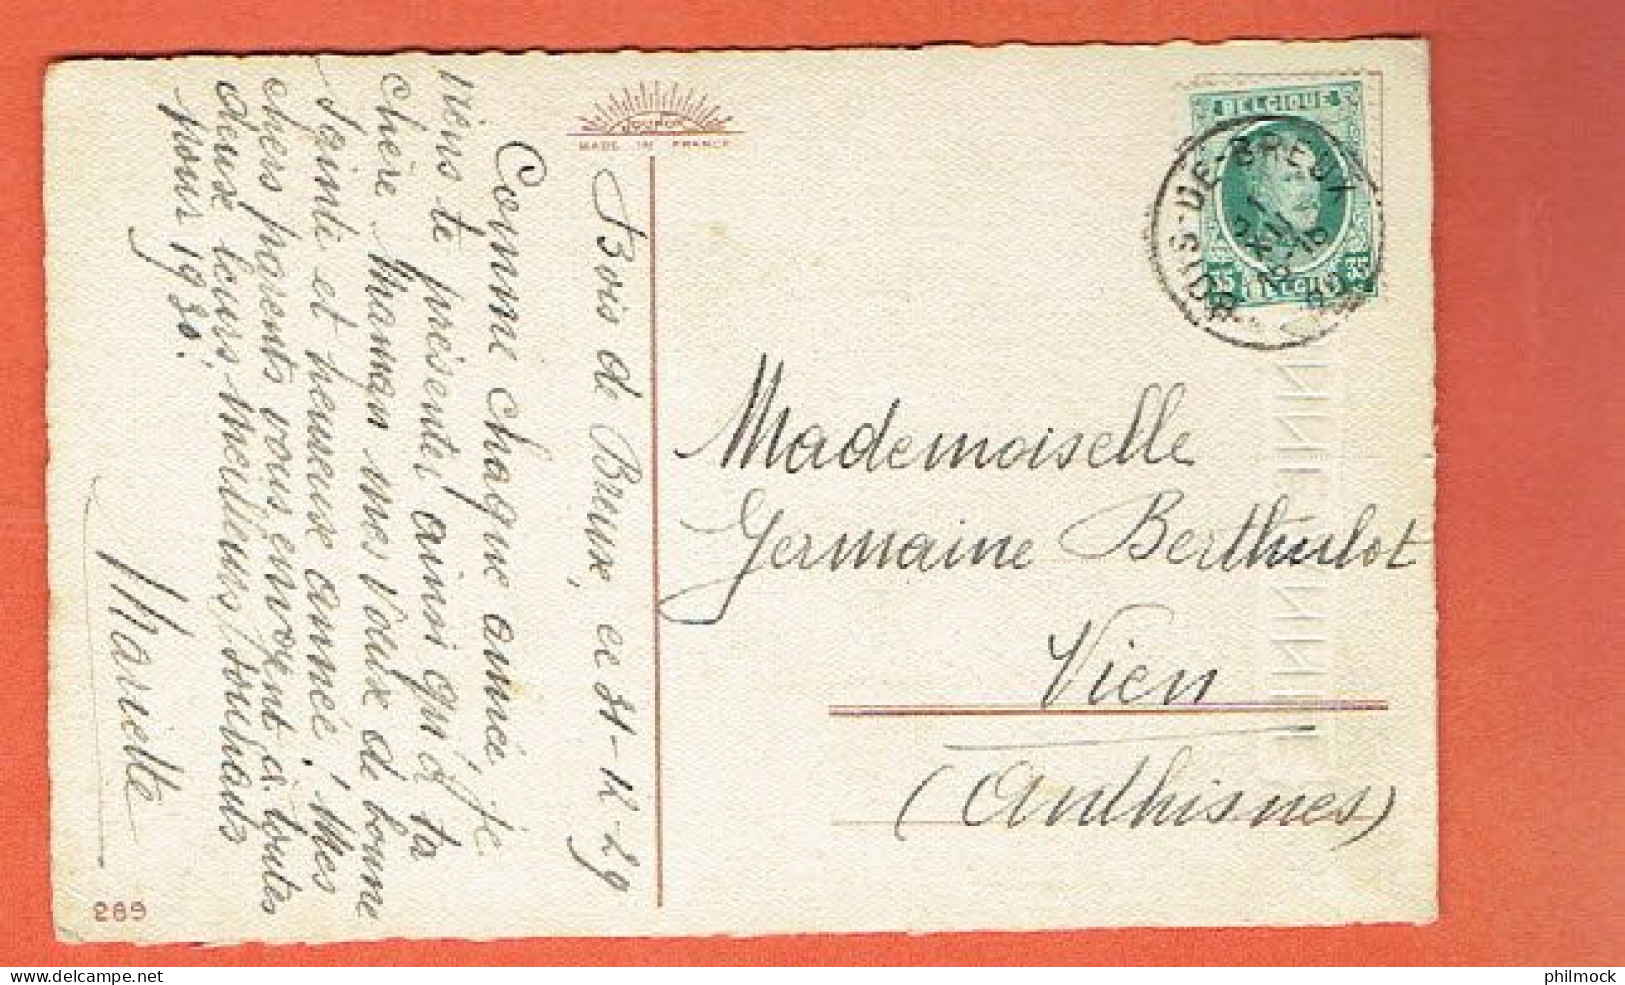 MADE IN FRANCE
Bois de Breux, ce 31-12-29
Comme chaque année, je
viens te présenter ainsi qu'à ta
chère Maman mes vœux de bonne
Sainte et heureuse année! Mes
chers parents vous envoyent à toutes
deux leurs meilleurs souhaits
pour 1930.
Marielle
289
BELGIQUE
35 BELGIË 35
BOIS-DE-BREUX
31
XII
Mademoiselle
Germaine Berthulot
Vien
(Anthisnes)
delcampe.net
philmock